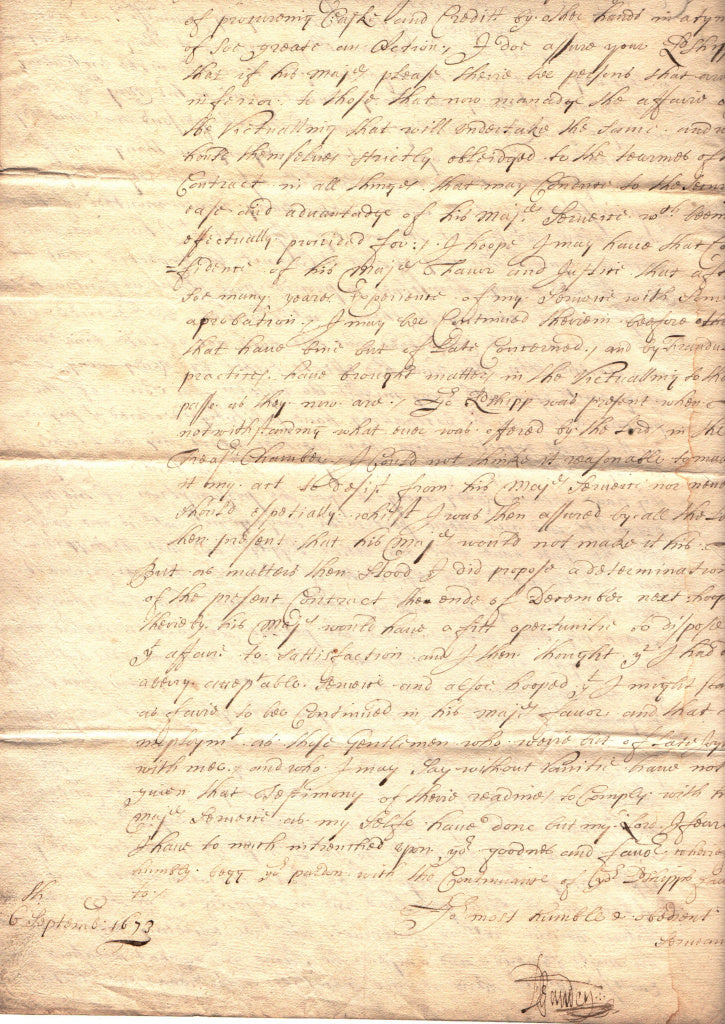 of procureing Caske and Creditt by other hands in a tym
of soe greate an Action, I doe assure your Lordshipp
that if his Maj:e please there bee persons that are
inferior to those that now manadge the affaire of
the Victualling that will undertake the same and
themselves strictly obleidged to the tearmes of
Contract in all thinges that may Conduce to the
ease and advantadge of his Maj:e Servece w:ch been
effectually provided for: I hoope I may have that Co
=fidence of his Maj:e favor and Justice that aft
Soe many yeares Experience of my Servece with
aprobation, I may bee Continued therein beefore oth
that have bine but of Late Concerned, and by Fraudu
practices have brought matters in the Victualling to th
passe as they now are; Yo:r Lordshipp was present when
notwithstanding what ever was offered by the Lords in the
Treas:y Chamber, I Could not thinke it reasonable to ma
it my act to desist from his Maj:e Servece nor never
should espetially whilst I was then assured by all the L
then present that his Maj:e would not make it his
But as matters then stood I did propose a determination
of the present Contract the ende of December next
thereby his Maj:e would have a fitt oportunitie to dispose
y:e affaire to sattisfaction and I then thought y:t I had
a very acceptable Servece and alsoe hooped y:t I might
as faire to bee Continued in his Maj:e favor and that
imploym:t as those Gentlemen who were but of late
with mee, and who I may say without vanitie have not
given that Testimony of theire readines to Comply with
Maj:e Servece as my Selfe have done but my Lord I fear
I have to much intrenched upon yo:r goodnes and favo:r
humbly begg yo:r pardon with the Continuance of
to:
6th September: 1673
Yo:r most humble & obedient
Servan
DGauden